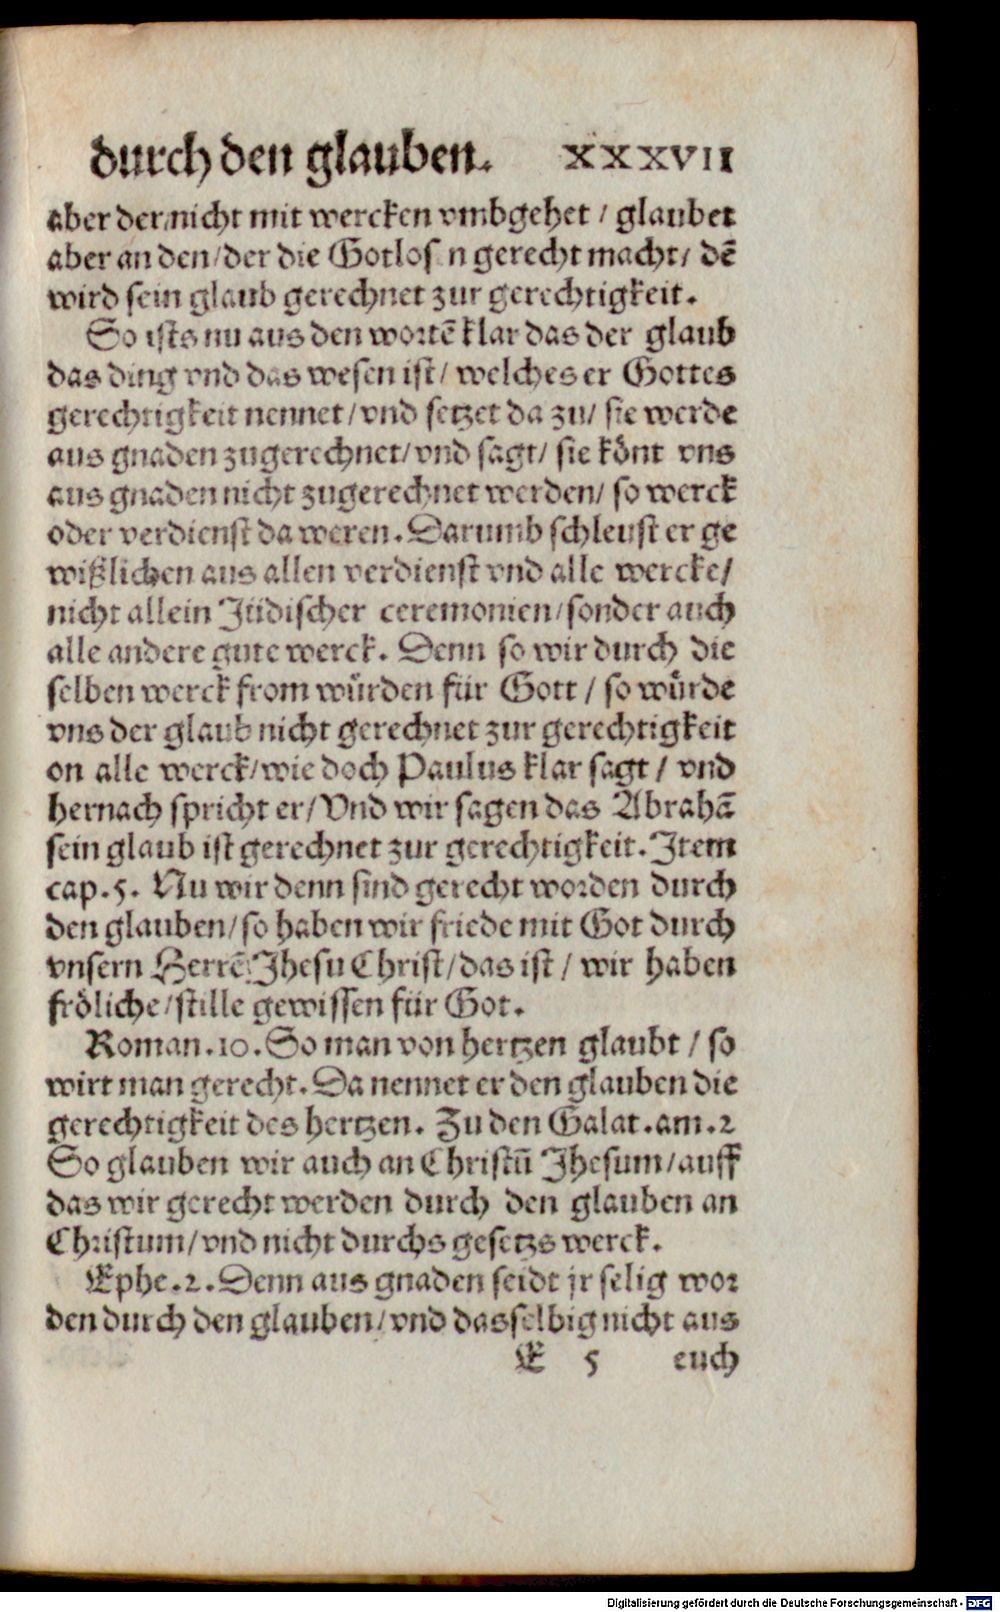 durch den glauben. XXXVII
aber der nicht mit wercken vmbgehet / glaubet
aber an den / der die Gotlosen gerecht macht / dē
wird sein glaub gerechnet zur gerechtigkeit.
So ists nu aus den wortē klar das der glaub
das ding vnd das wesen ist / welches er Gottes
gerechtigkeit nennet / vnd setzet da zu / sie werde
aus gnaden zugerechnet / vnd sagt / sie könt vns
aus gnaden nicht zugerechnet werden / so werck
oder verdienst da weren. Darumb schleust er ge
wißlichen aus allen verdienst vnd alle wercke /
nicht allein Jüdischer ceremonien / sonder auch
alle andere gute werck. Denn so wir durch die
selben werck from würden für Gott / so würde
vns der glaub nicht gerechnet zur gerechtigkeit
on alle werck / wie doch Paulus klar sagt / vnd
hernach spricht er / Vnd wir sagen das Abrahā
sein glaub ist gerechnet zur gerechtigkeit. Item
cap. 5. Nu wir denn sind gerecht worden durch
den glauben / so haben wir friede mit Got durch
vnsern Herrē Jhesu Christ / das ist / wir haben
fröliche / stille gewissen für Got.
Roman. 10. So man von hertzen glaubt / so
wirt man gerecht. Da nennet er den glauben die
gerechtigkeit des hertzen. Zu den Galat. am. 2
So glauben wir auch an Christū Jhesum / auff
das wir gerecht werden durch den glauben an
Christum / vnd nicht durchs gesetzs werck.
Ephe. 2. Denn aus gnaden seidt jr selig wor
den durch den glauben / vnd dasselbig nicht aus
E 5 euch
Digitalisierung gefördert durch die Deutsche Forschungsgemeinschaft - DFG